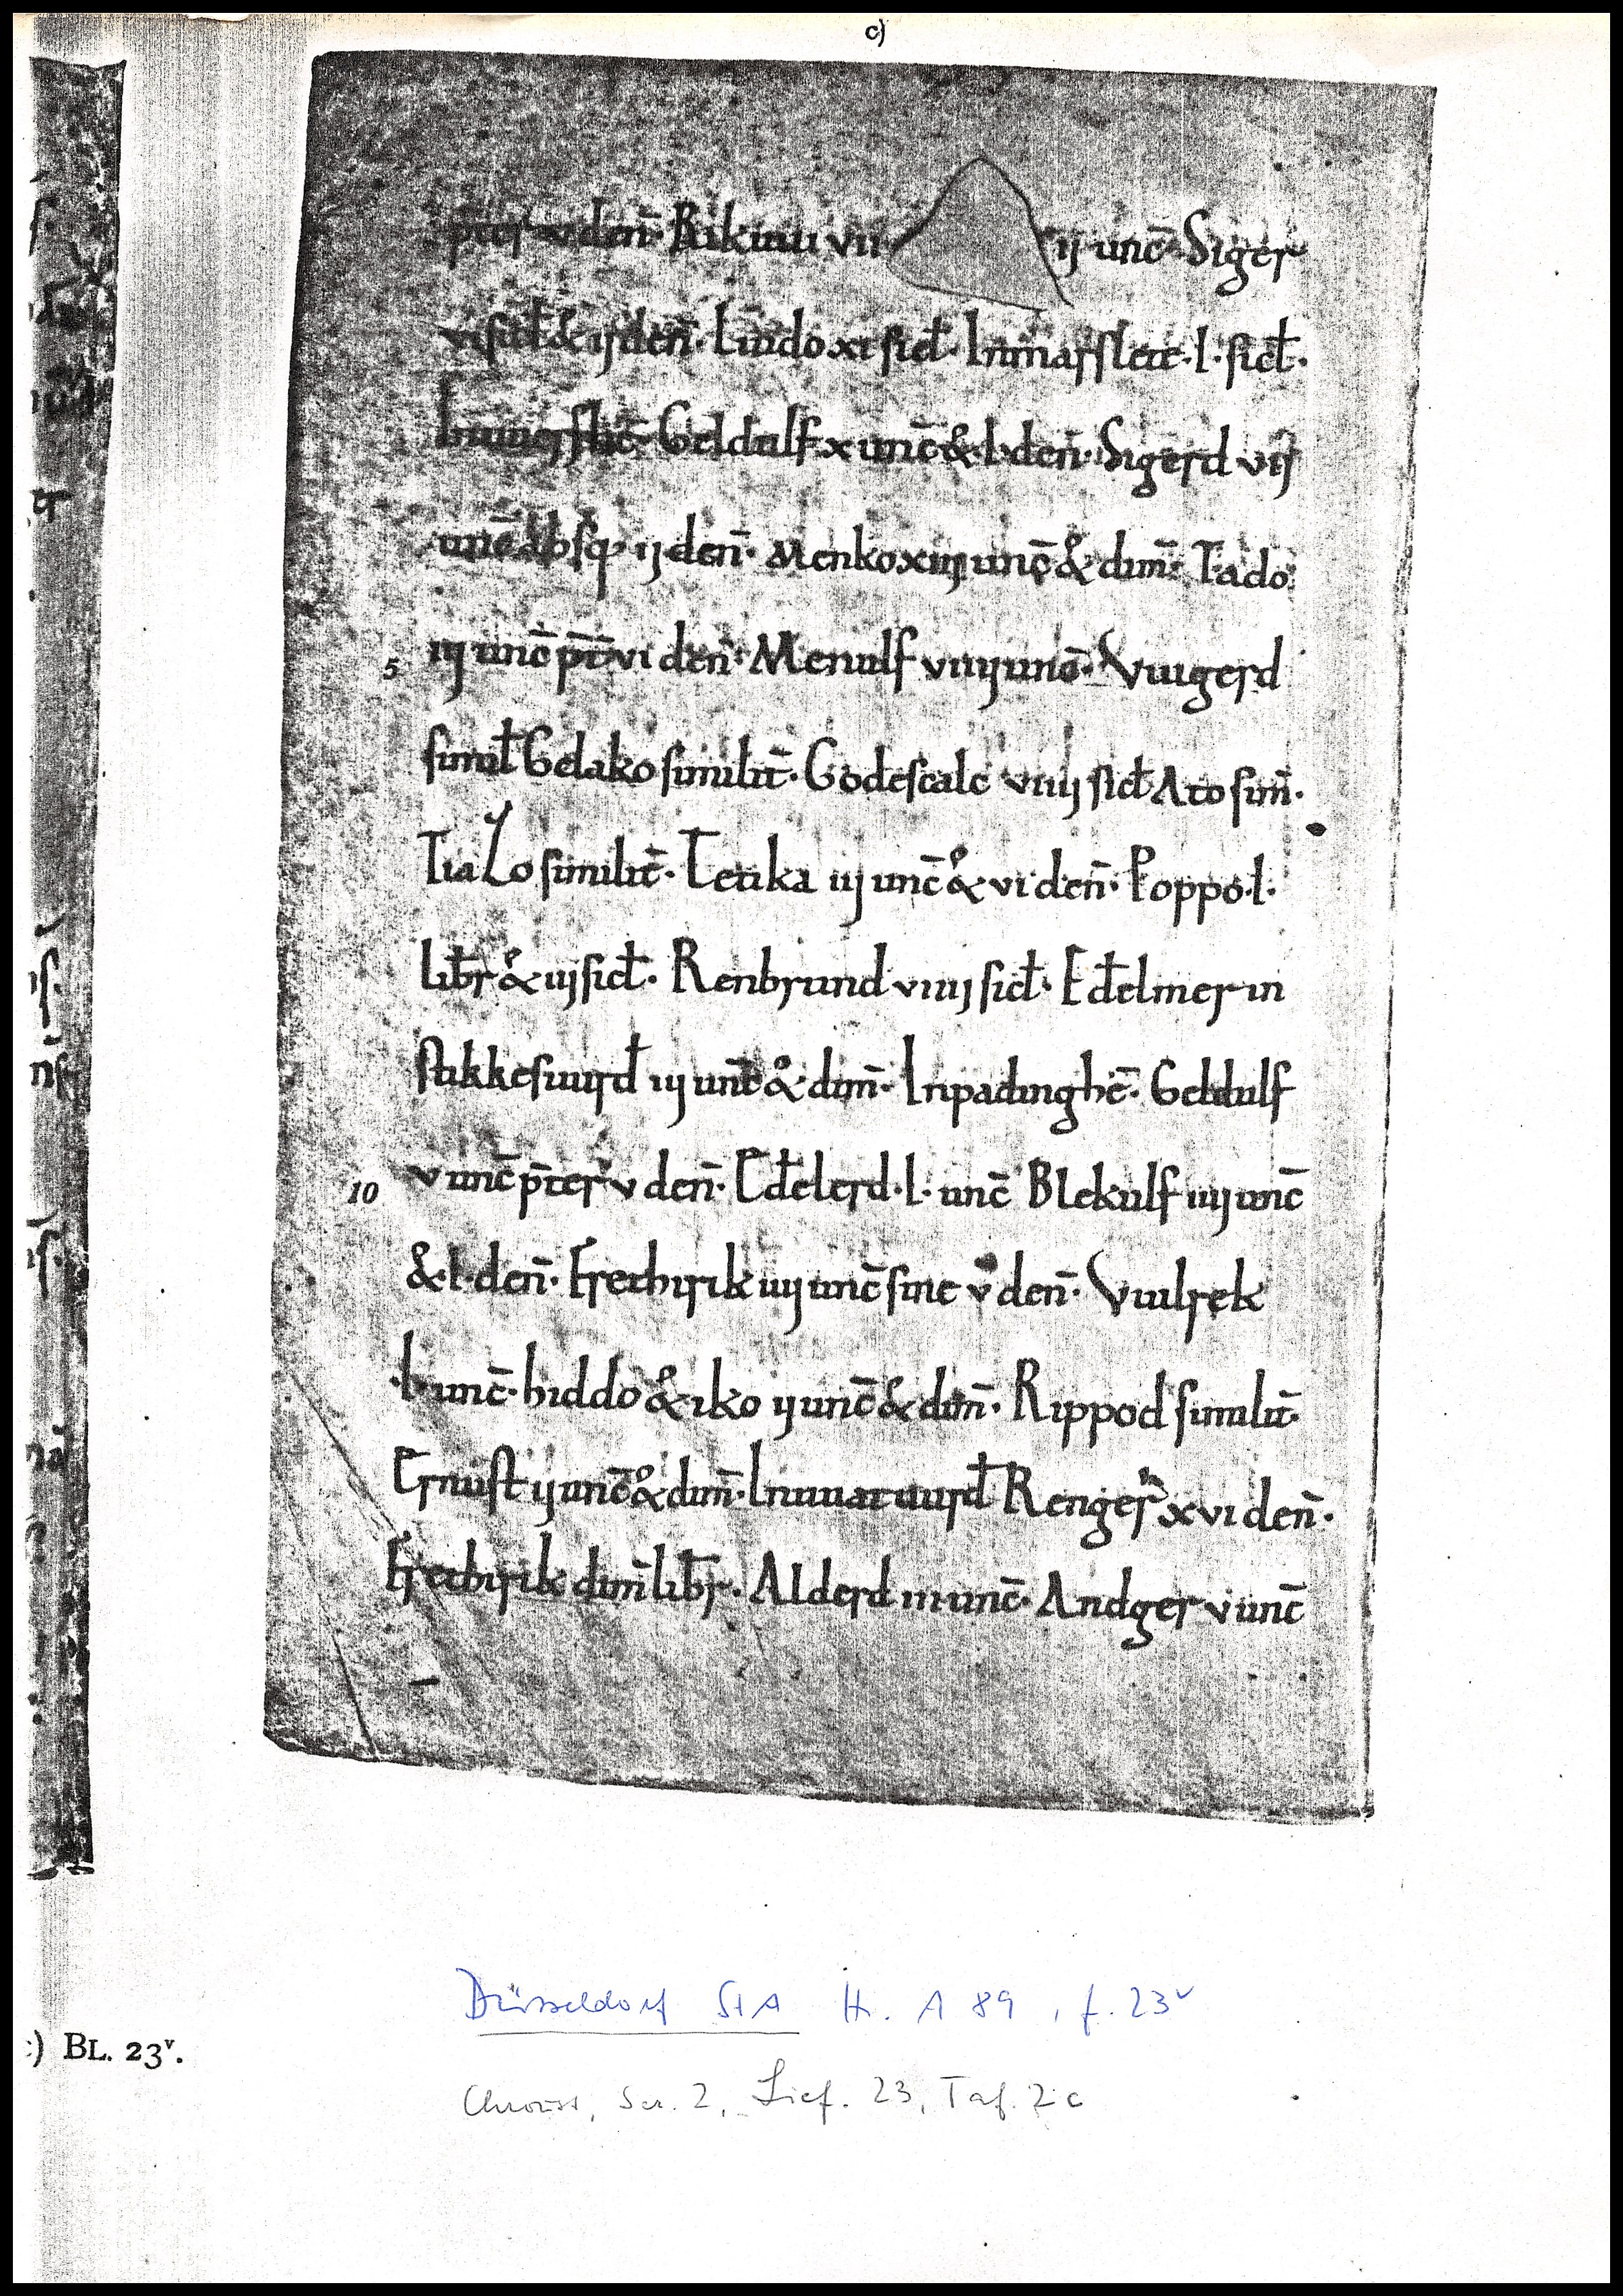 c)
p̄ter v den̄· Rikuui vii ij unc̄· Siger
vi sicł & ij den̄· Liudo xi sicł· Inmarsflete·l·sicł·
Geldulf x unc̄ &·l·den̄· Sigerd vij
unc̄ absq; ij den̄· Menko xiij unc̄ & dim̄· Tado
5 iij unc̄ p̄t̄ vi den̄· Menulf viiij unc̄· Vuigerd
simił Gelako similit̄· Godescalc viiij sicł Ato sim̄·
Tiazo similit̄· Tetika iij unc̄ & vi den̄· Poppo·l·
lib̄r & iij sicł· Renbrund viiij sicł· Eđelmer in
stikkesuurđ iij unc̄ & dim̄· Inpadinghē· Geldulf
10 v unc̄ p̄ter v den̄· Eđelerd·l· unc̄ Blekulf iiij unc̄
&·l·den̄· Frethirik iiij unc̄ sine v den̄· Vuilrek
·l· unc̄· hiddo & iko ij unc̄ & dim̄· Rippod similit̄·
Ernust ij unc̄ & dim̄· Inuuatuurđ Renger xvi den̄·
Frethirik dim̄ lib̄r· Alderd iii unc̄· Andger v unc̄
Düsseldorf StA Hs. A 89, f. 23v
:) BL. 23v.
Chroust, Ser. 2, Lief. 23, Taf. 2c